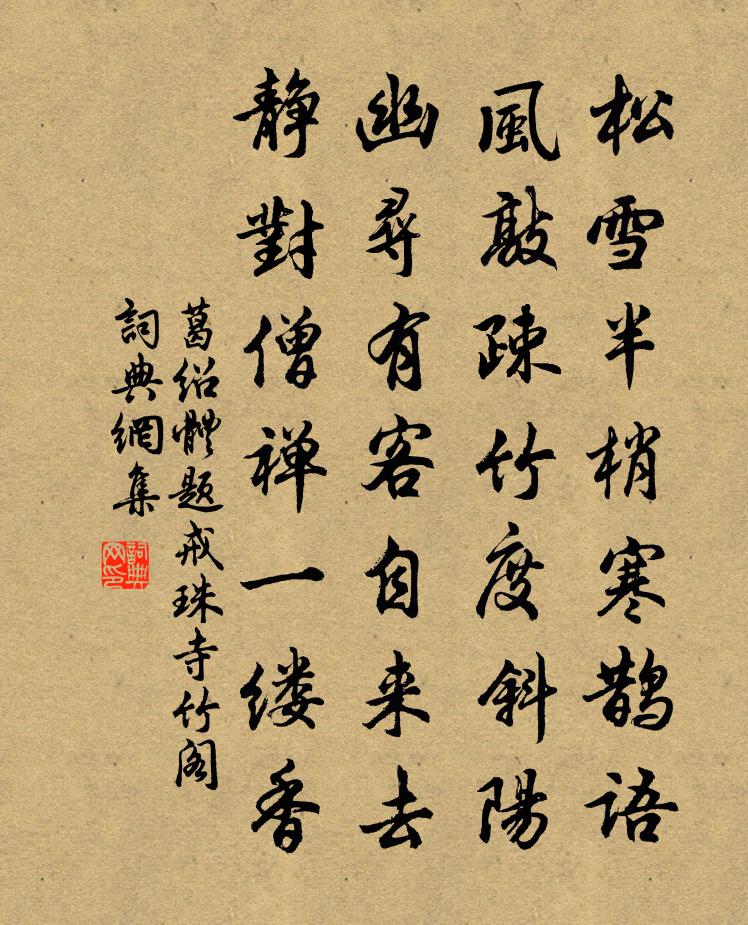 松雪半梢寒鹊語
風敲疎竹度斜陽
幽尋有客自来去
静對僧禅一缕香
葛绍體题戒珠寺竹阁
詞典網集
詞典網印